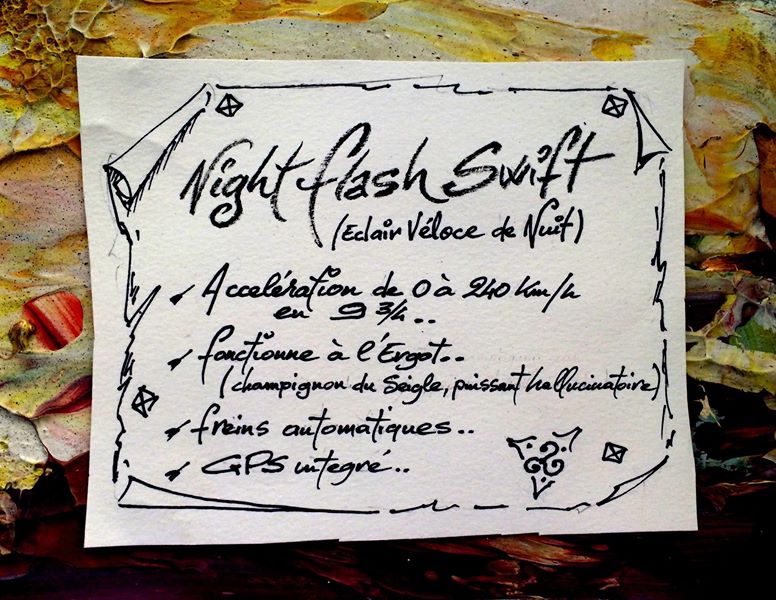 Night flash Swift
(Eclair Véloce de Nuit)
Accelération de 0 à 240 Km/h
en 9 3/4..
fonctionne à l'Ergot..
(champignon du Seigle, puissant hallucinatoire)
freins automatiques..
GPS integré..